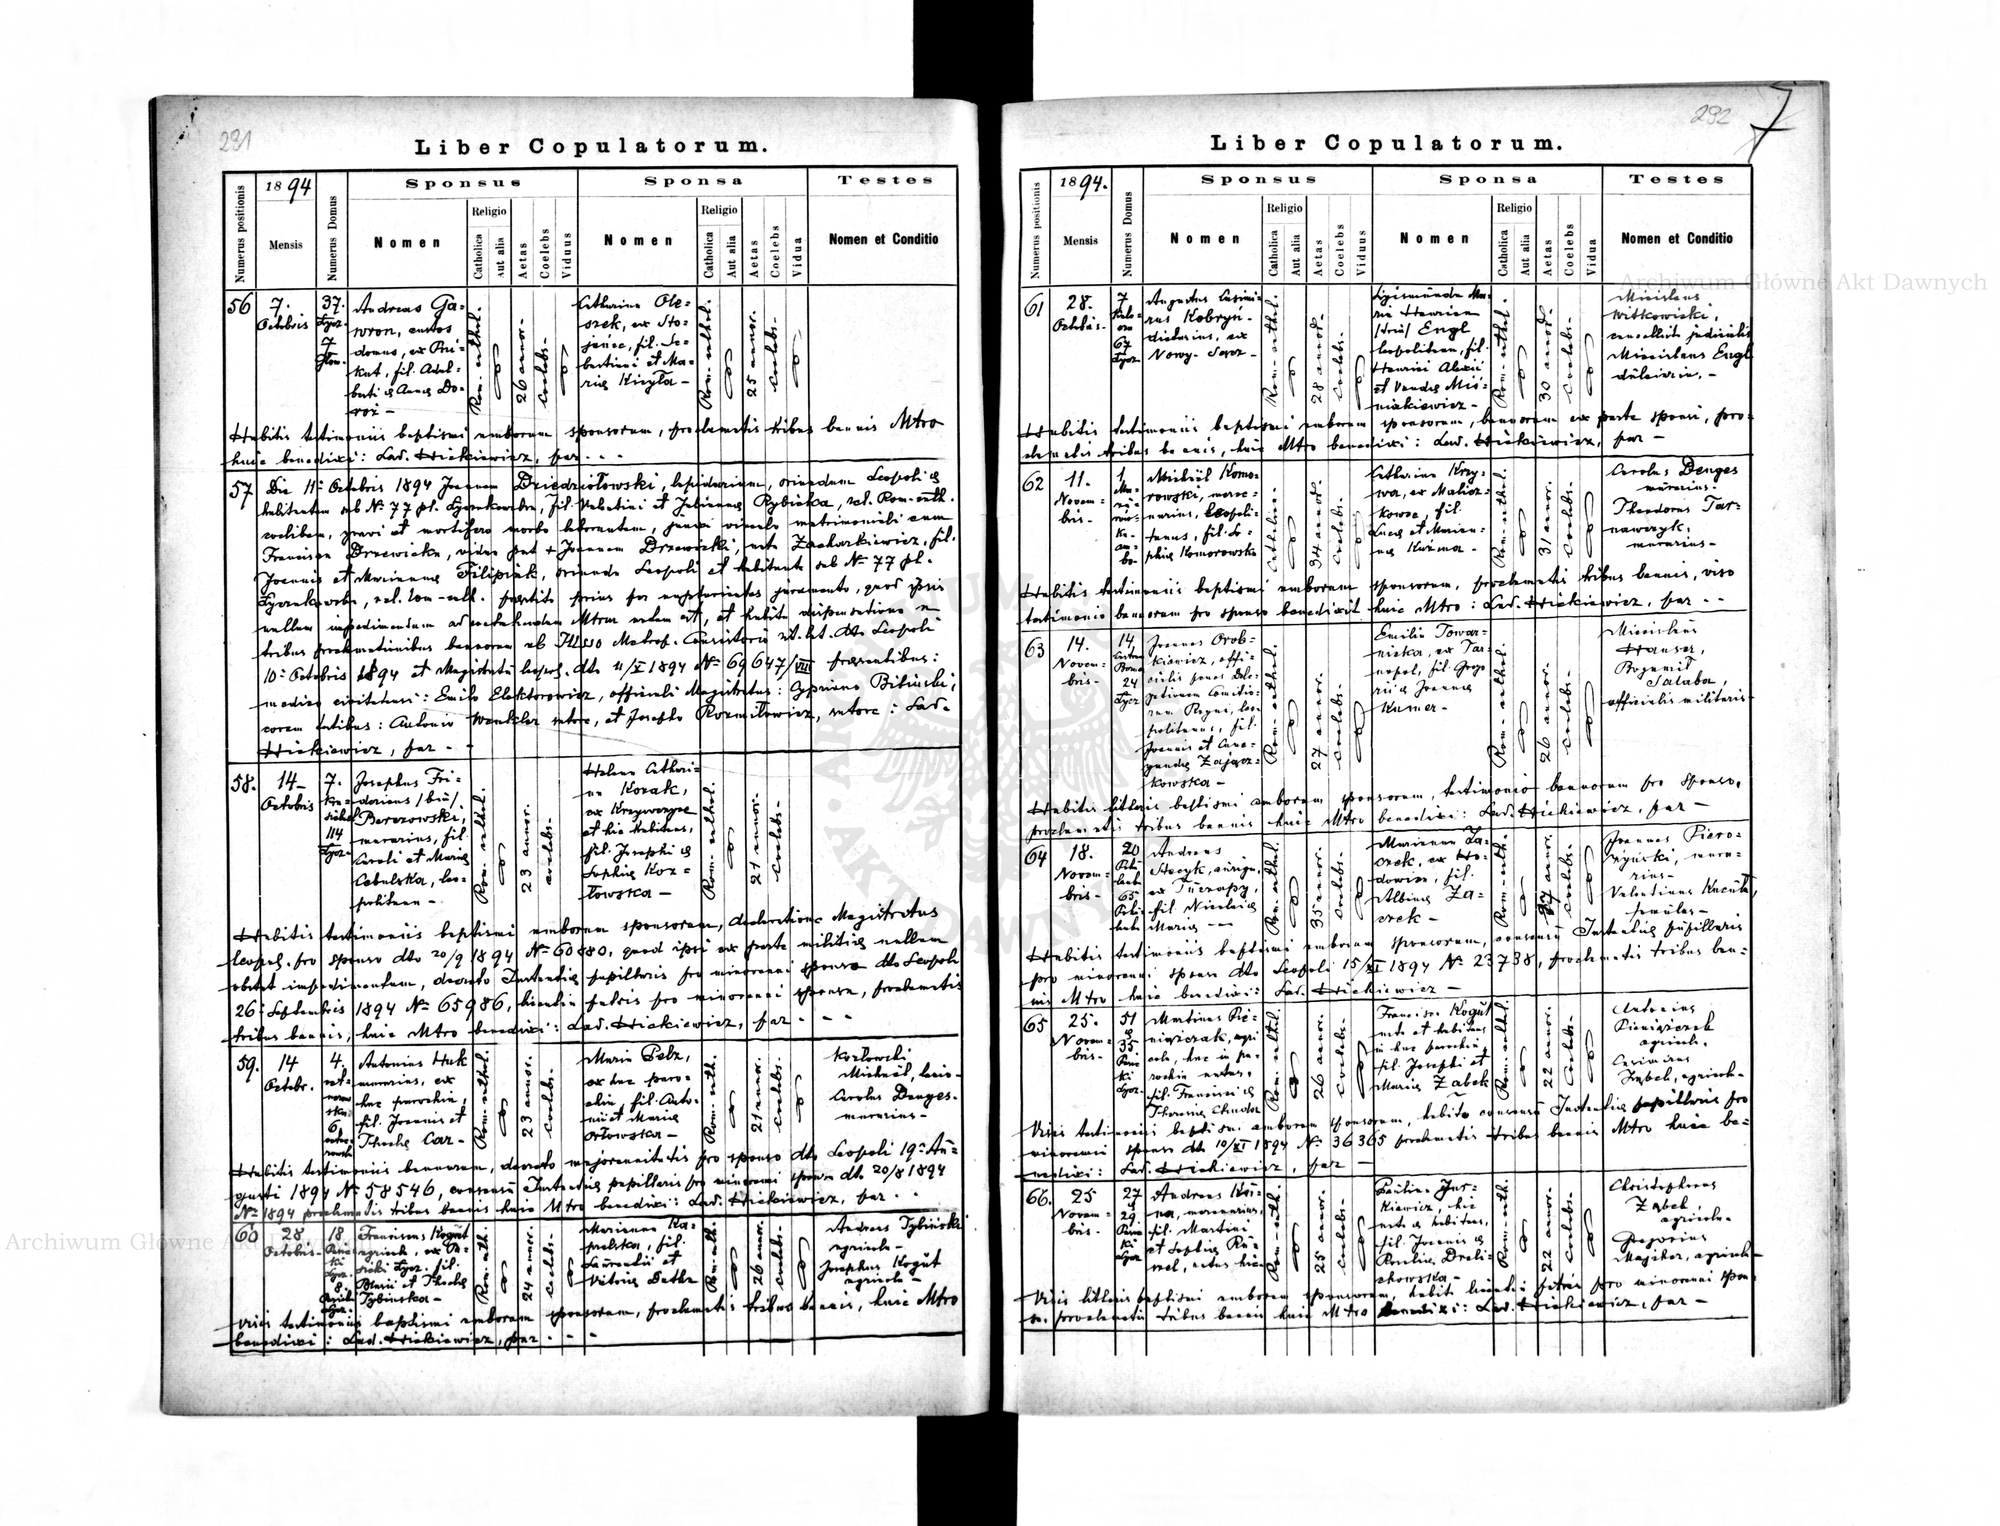 231
Liber Copulatorum.
Numerus positionis
1894
Mensis
Numerus Domus
Sponsus
Nomen
Religio
Catholica
Aut alia
Aetas
Coelebs
Viduus
Sponsa
Nomen
Religio
Catholica
Aut alia
Aetas
Coelebs
Vidua
Testes
Nomen et Conditio
56
7.
Octobris
37.
Łycz.
7
Andreas Ga-
wron, custos
domus, ex
fil. Adal-
berti et Annae
Rom. cathol.
26 annor.
Coelebs
Catharina Ole-
szek, ex Sto-
janec, fil. Se-
bastiani et Ma-
riae Kiczyła
Rom. cathol.
25 annor.
Coelebs
Habitis testimoniis baptismi amborum sponsorum, proclamatis tribus bannis Mtro
huic benedixi: Lad. Hickiewicz, par.
57
Die 11 Octobris 1894 Joannem Dziedziłowski, lapidarium, oriundum Leopoli et
habitantem sub No 77 pl. Łyczakowska, fil. Valentini et Rybicka, rel. Rom-cath.
coelibem, gravi et mortifero morbo laborantem, junxi vinculo matrimoniali cum
Francisca Drzewicka, vidua post + Joannem Drzewicki, nata Zacharkiewicz, fil.
Joannis et Mariannae Filipiak, oriunda Leopoli et habitante sub No 77 pl.
Łyczakowska, rel. rom-cath. praestito prius per nupturientes juramento, quod ipsis
nullum impedimentum ad contrahendum Mtrm obstat, et habita dispensatione a
tribus proclamationibus bannorum ab Metrop. Consistorio rit. lat. dto Leopoli
10 Octobris 1894 et Magistratu leopol. dto 11/X 1894 No 69647/VIII praesentibus:
medico civitatensi: Emilo Elektorowicz, officiali Magistratus: Cypriano Biliński,
coram testibus: Antonio Wenkler sutore, et Josepho Rozmiłowicz, sutore: Lad.
Hickiewicz, par
58.
14
Octobris
7.
114
Łycz.
Josephus Fri-
dericus /bin/.
Berezowski,
murarius, fil.
Caroli et Mariae
Cebulska, leo-
politan
Rom. cathol.
23 annor.
coelebs
Helena Cathari-
na Kozak,
ex Krzywczyce
et hic habitans,
fil. Josephi et
Sophiae Koz-
łowska
Rom. cathol.
21 annor.
Coelebs
Habitis testimoniis baptismi amborum sponsorum, declaratione Magistratus
leopol. pro sponso dto 20/9 1894 No 60880, quod ipsi ex parte militiae nullum
obstat impedimentum, decreto Instantiae pupillaris pro minorenni sponso dto Leopoli
26 Septembris 1894 No 65986, licentia patris pro minorenni sponsa, proclamatis
tribus bannis, huic Mtro benedixi: Lad. Hickiewicz, par
59.
14
Octobr.
4.
6
Antonius Huk
murarius, ex
hac parochia,
fil. Joannis et
Theclae Car
Rom. cathol.
23 annor.
Coelebs
Maria Pelz,
ex hac paro-
chia, fil. Anto-
nii et Mariae
Orłowska
Rom. cath.
21 annor.
Coelebs
Kozłowski
Michaël,
Carolus Denges
murarius
Habitis testimoniis bannorum, decreto majorennitatis pro sponso dto Leopoli 19 Au-
gusti 1894 No 58546, consensu Instantiae pupillaris pro minorenni sponsa dto 20/8 1894
No 1894 proclamatis tribus bannis huic Mtro benedixi: Lad. Hickiewicz, par
60
28.
Octobris
18
8
Franciscus Kogut
agricola,
Łycz. fil.
Blasii et Theclae
Tybinska
Rom. cath.
24 annor.
coelebs
Marianna Ka-
pralska, fil.
Laurentii et
Victoriae
Rom. cath.
26 annor.
coelebs
Andreas Tybiński
agricola
Josephus Kogut
agricola
Visis testimoniis baptismi amborum sponsorum, proclamatis tribus bannis, huic Mtro
benedixi: Lad. Hickiewicz, par
292
7
Liber Copulatorum.
Numerus positionis
1894.
Mensis
Numerus Domus
Sponsus
Nomen
Religio
Catholica
Aut alia
Aetas
Coelebs
Viduus
Sponsa
Nomen
Religio
Catholica
Aut alia
Aetas
Coelebs
Vidua
Testes
Nomen et Conditio
61
28.
Octobris
7
67
Łycz.
Augustus Casimi-
rus Kobryn-
ex
Nowy-Sącz
Rom. cathol.
28 annor.
Coelebs
Sigismunda Ma-
ria Henrica
/trin/ Engl
leopolitana, fil.
Henrici Alexii
et Vandae Miś-
niakiewicz
Rom. cathol.
30 annor.
Coelebs
Micislaus
Witkowicki,
cancellista judicialis
Micislaus Engl
Habitis testimoniis baptismi amborum sponsorum, bannorum ex parte sponsi, pro-
clamatis tribus bannis, huic Mtro benedixi: Lad. Hickiewicz, par
62
11.
Novem-
bris
1
Michaël Komo-
rowski, merce-
narius, leopoli-
tanus, fil. Jo-
sephi Komorowski
Catholica
34 annor.
Coelebs
Catharina Krzy-
wa, ex Malicz-
kowce, fil.
Lucae et Marian-
nae Kuzma
Rom. cathol.
31 annor.
Coelebs
Carolus Denges
murarius
Theodorus Tar-
nawczyk,
murarius
Habitis testimoniis baptismi amborum sponsorum, proclamatis tribus bannis, viso
testimonio bannorum pro sponso benedixit huic Mtro: Lad. Hickiewicz, par
63
14.
Novem-
bris
14
24
Łycz
Joannes Orob-
kiewicz, offi-
cialis penes Dele-
gationem Comitio-
rum Regni, leo-
politanus, fil.
Joannis et Cune-
gundae Zającz-
kowska
Rom. cathol.
27 annor.
coelebs
Emilia Towar-
nicka, ex Tar-
nopol, fil. Grego-
rii et Joannae
Kumer
Rom. cathol.
26 annor.
coelebs
Micislaus
Hauser,
Bogumił
Sałaba,
officialis militaris
Habitis litteris baptismi amborum sponsorum, testimonio bannorum pro sponso,
proclamatis tribus bannis huic Mtro benedixi: Lad. Hickiewicz, par
64
18.
Novem-
bris
20
65
Andreas
Stecyk, auriga,
ex Turzapsy,
fil. Nicolai et
Mariae
Rom. cathol.
35 annor.
Coelebs
Marianna Za-
czek, ex Ho-
dowica, fil.
Albini Za-
czek
Rom. cath.
annor.
Coelebs
Joannes Piero-
żyński, mura-
rius
Valentinus
famulus
Habitis testimoniis baptismi amborum sponsorum, consensu Instantiae pupillaris
pro minorenni sponsa dto Leopoli 15/XI 1894 No 23738, proclamatis tribus ban-
nis Mtro huic benedixi: Lad. Hickiewicz
65
25.
Novem-
bris
51
et
35
Łycz.
Martinus Pie-
niążczak, agri-
cola, hac in pa-
rochia natus,
fil. Francisci et
Theresiae
Rom. cathol.
26 annor.
coelebs
Francisca Kogut
nata et habitans
in hac parochia,
fil. Josephi et
Mariae Ząbek
Rom. cathol.
22 annor.
Coelebs
Antonius
Pieniążczak
agricola.
Casimirus
Ząbek, agricola
Visis testimoniis baptismi amborum sponsorum, habito consensu Instantiae pupillaris pro
minorenni sponsa dto 10/XI 1894 No 36365 proclamatis tribus bannis Mtro huic be-
nedixi: Lad. Hickiewicz, par
66.
25
Novem-
bris
27
29
Andreas
mercenarius,
fil. Martini
et Sophiae
natus hic
Rom. cath.
25 annor.
coelebs
Paulina Jur-
kiewicz, hic
nata et habitans,
fil. Joannis et
Rosaliae Dreli-
chowska
Rom. cath.
22 annor.
Coelebs
Christophorus
Ząbek,
agricola
Gregorius
Majcher, agricola
Visis litteris baptismi amborum sponsorum, habita licentia patris pro minorenni spon-
sa, proclamatis tribus bannis huic Mtro benedixi: Lad. Hickiewicz, par
Archiwum Główne Akt Dawnych
Archiwum Główne Akt Dawnych
ARCHIWUM
AKT DAWNYCH